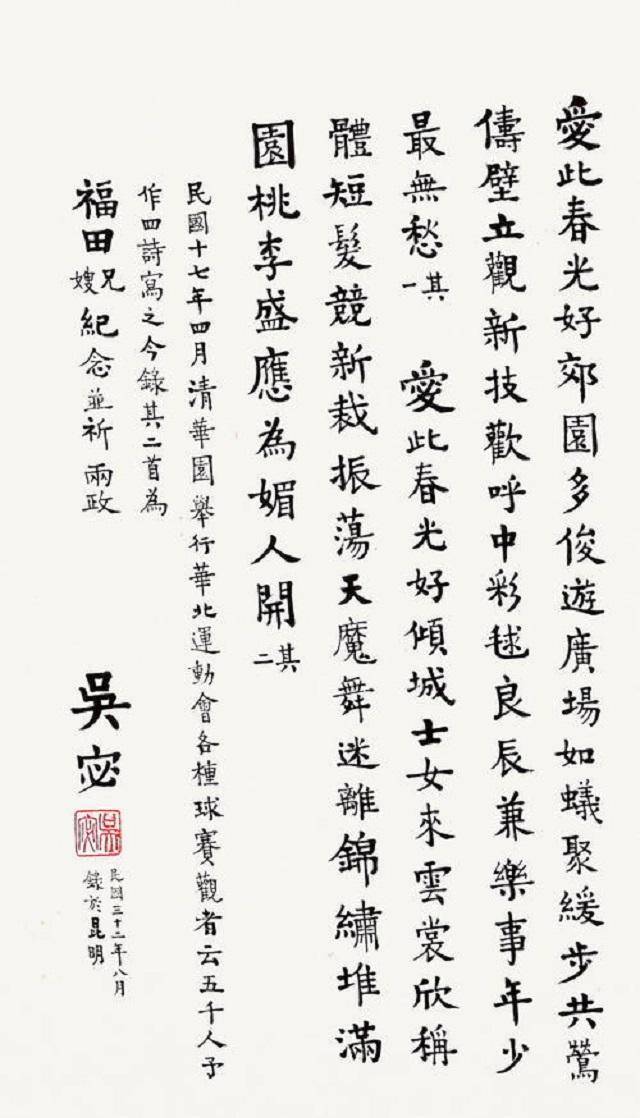 愛此春光好郊園多俊遊廣場如蟻聚緩步共鶯
儔壁立觀新技歡呼中彩毬良辰兼樂事年少
最無愁其一 愛此春光好傾城士女來雲裳欣稱
體短髮競新裁振蕩天魔舞迷離錦繡堆滿
園桃李盛應為媚人開其二
民國十七年四月清華園舉行華北運動會各種球賽觀者云五千人予
作四詩寫之今錄其二首為
福田兄嫂紀念並祈 兩政
吳宓
吳宓
民國三十二年八月
錄於昆明